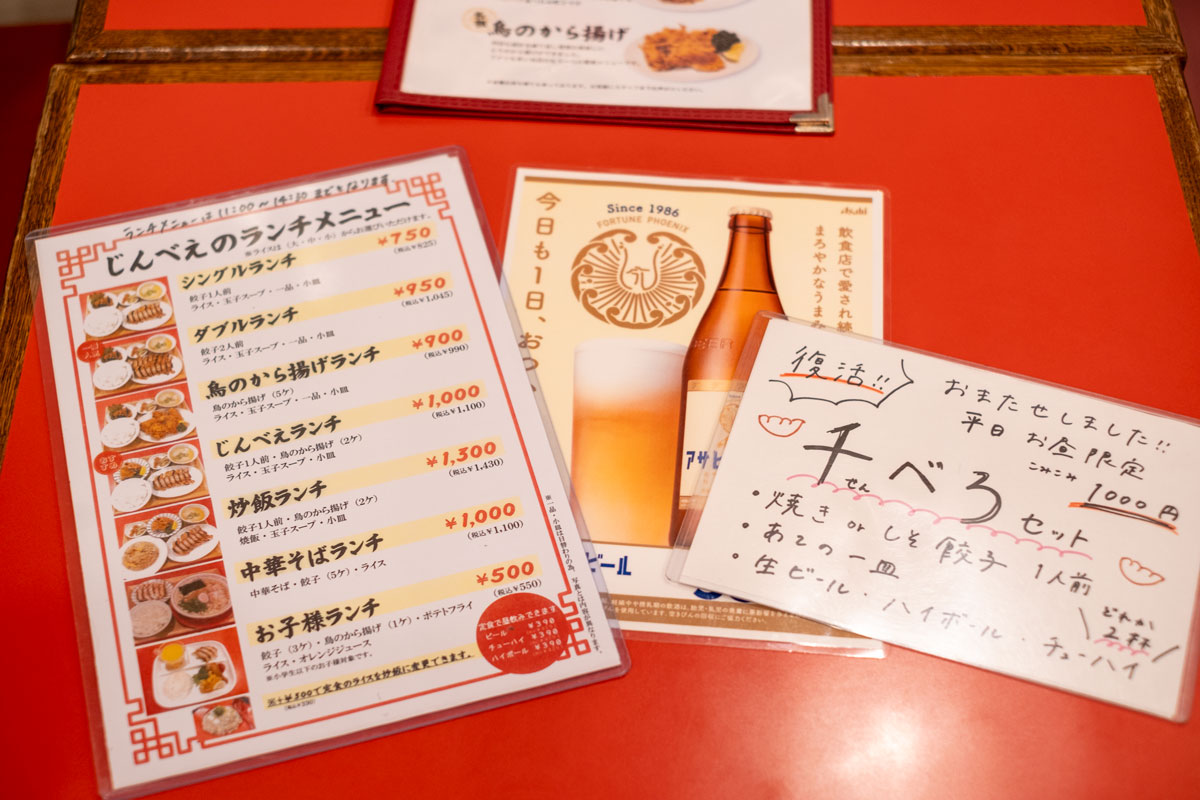 名物 鳥のから揚げ
ランチメニューは11:00～14:30までとなります。
じんべえのランチメニュー
※ライスは（大・中・小）からお選びいただけます。
シングルランチ ¥750
（税込¥825）
餃子1人前
ライス・玉子スープ・一品・小皿
ダブルランチ ¥950
（税込¥1,045）
餃子2人前
ライス・玉子スープ・一品・小皿
鳥のから揚げランチ ¥900
（税込¥990）
鳥のから揚げ（5ケ）
ライス・玉子スープ・一品・小皿
じんべえランチ ¥1,000
（税込¥1,100）
餃子1人前・鳥のから揚げ（2ケ）
ライス・玉子スープ・小皿
炒飯ランチ ¥1,300
（税込¥1,430）
餃子1人前・鳥のから揚げ（2ケ）
焼飯・玉子スープ・小皿
中華そばランチ ¥1,000
（税込¥1,100）
中華そば・餃子（5ケ）・ライス
お子様ランチ ¥500
（税込¥550）
餃子（3ケ）・鳥のから揚げ（1ケ）・ポテトフライ
ライス・オレンジジュース
※小学生以下のお子様対象です。
※+¥300で定食のライスを炒飯に変更できます。
（税込¥330）
定食で昼飲みできます
ビール ¥390
チューハイ ¥390
ハイボール ¥390
※一品・小皿は日替わりの為、写真とは内容が異なります。
Asahi
Since 1986
FORTUNE PHOENIX
今日も1日、おつ
飲食店で愛され続
まろやかなうま
アサヒ
ビール
復活!!
おまたせしました!!
平日 お昼限定
こみこみ 1000円
千べろセット
せん
・焼き or しそ 餃子 1人前
・あての一皿
・生ビール・ハイボール チューハイ
どれか
2杯